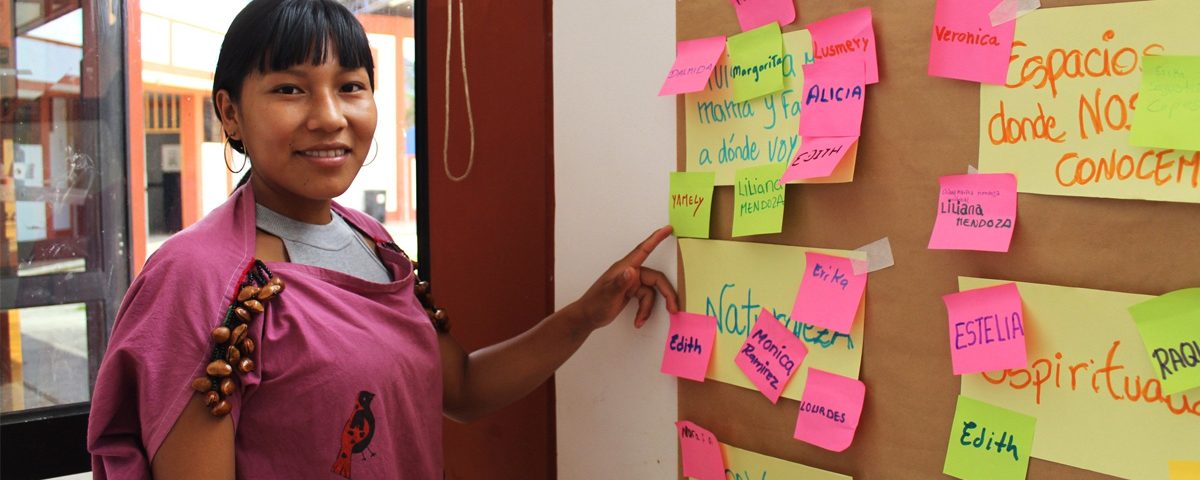 DALMIDA
Margarita
Lusmery
ALICIA
EDITH
mamá y fa
a dónde VOY
YAMELY
LILIANA
MENDOZA
Veronica
Espacios
donde NOS
CONOCEM
Liliana
MENDOZA
Naturaleza
Erika
Edith
Monica
Ramirez
LOURDES
ESTELIA
Espiritua
RAQU
Edith